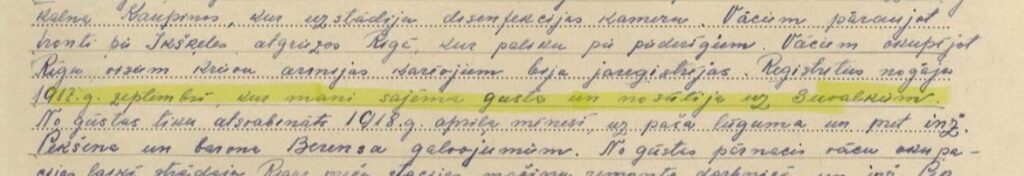 kalna Kaupinos, kur uzstādīju disenfekcijas kameru. Vāciem pāraujot
fronti pie Ikšķeles, atgriezos Rīgā, kur paliku pie piederīgiem. Vāciem okupējot
Rīgu visiem krievu armijas karavīriem bija jāreģistrējas. Reģistrēties nogāju
1917.g. septembrī, kur mani saņēma gūstā un nosūtīja uz Suvalkiem.
No gūstas tiku atsvabināts 1918.g. aprīļa mēnesī, uz paša lūguma un pret inž.
un barona Berensa galvojumiem. No gūstas pārnācis vācu okupā-
cijas laikā strādāju Rīgas stacijas mašīnu remonta darbnīcā un inž.